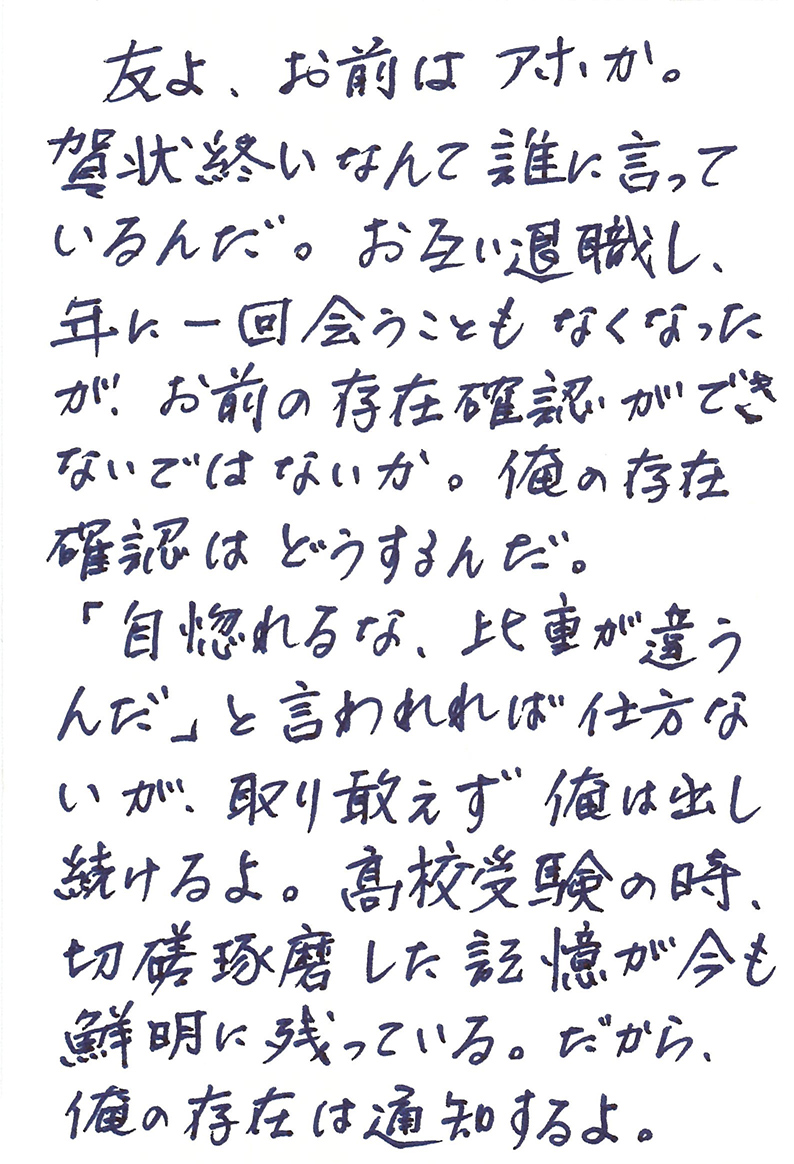 友よ、お前はアホか。
賀状終いなんて誰に言って
いるんだ。お互い退職し、
年に一回会うこともなくなった
が、お前の存在確認ができ
ないではないか。俺の存在
確認はどうするんだ。
「自惚れるな、比重が違う
んだ」と言われれば仕方な
いが、取り敢えず俺は出し
続けるよ。高校受験の時、
切磋琢磨した記憶が今も
鮮明に残っている。だから、
俺の存在は通知するよ。